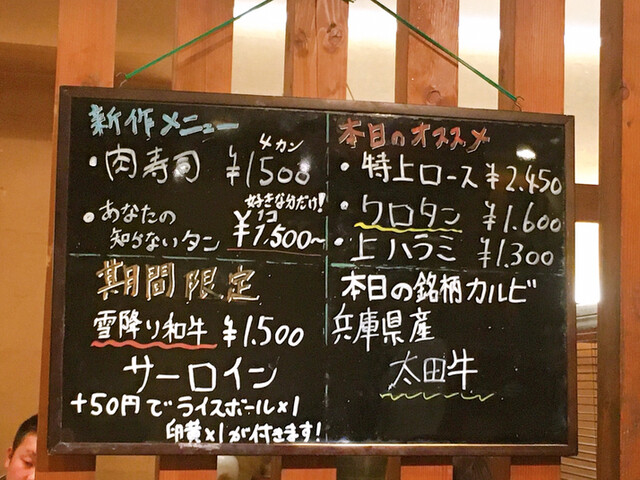 新作メニュー
4カン
・肉寿司 ¥1500
好きな分だけ!
・あなたの 1コ
知らないタン ¥1,500~
期間限定
雪降り和牛 ¥1.500
サーロイン
+50円でライスボール×1
卵黄×1が付きます!
本日のオススメ
・特上ロース ¥2.450
・クロタン ¥1.600
・上ハラミ ¥1.300
本日の銘柄カルビ
兵庫県産
太田牛